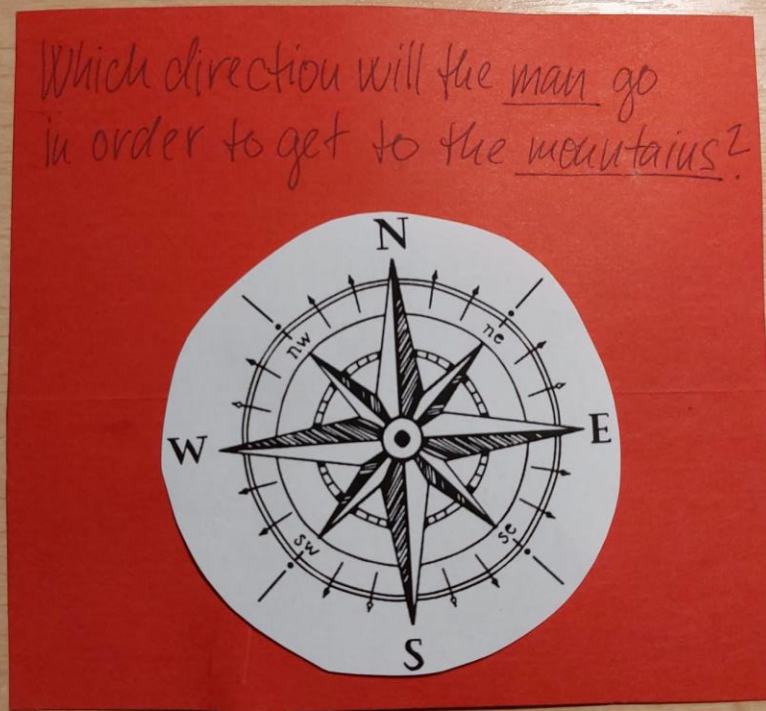 Which direction will the man go
in order to get to the mountains?
N
nw
ne
W
E
sw
se
S